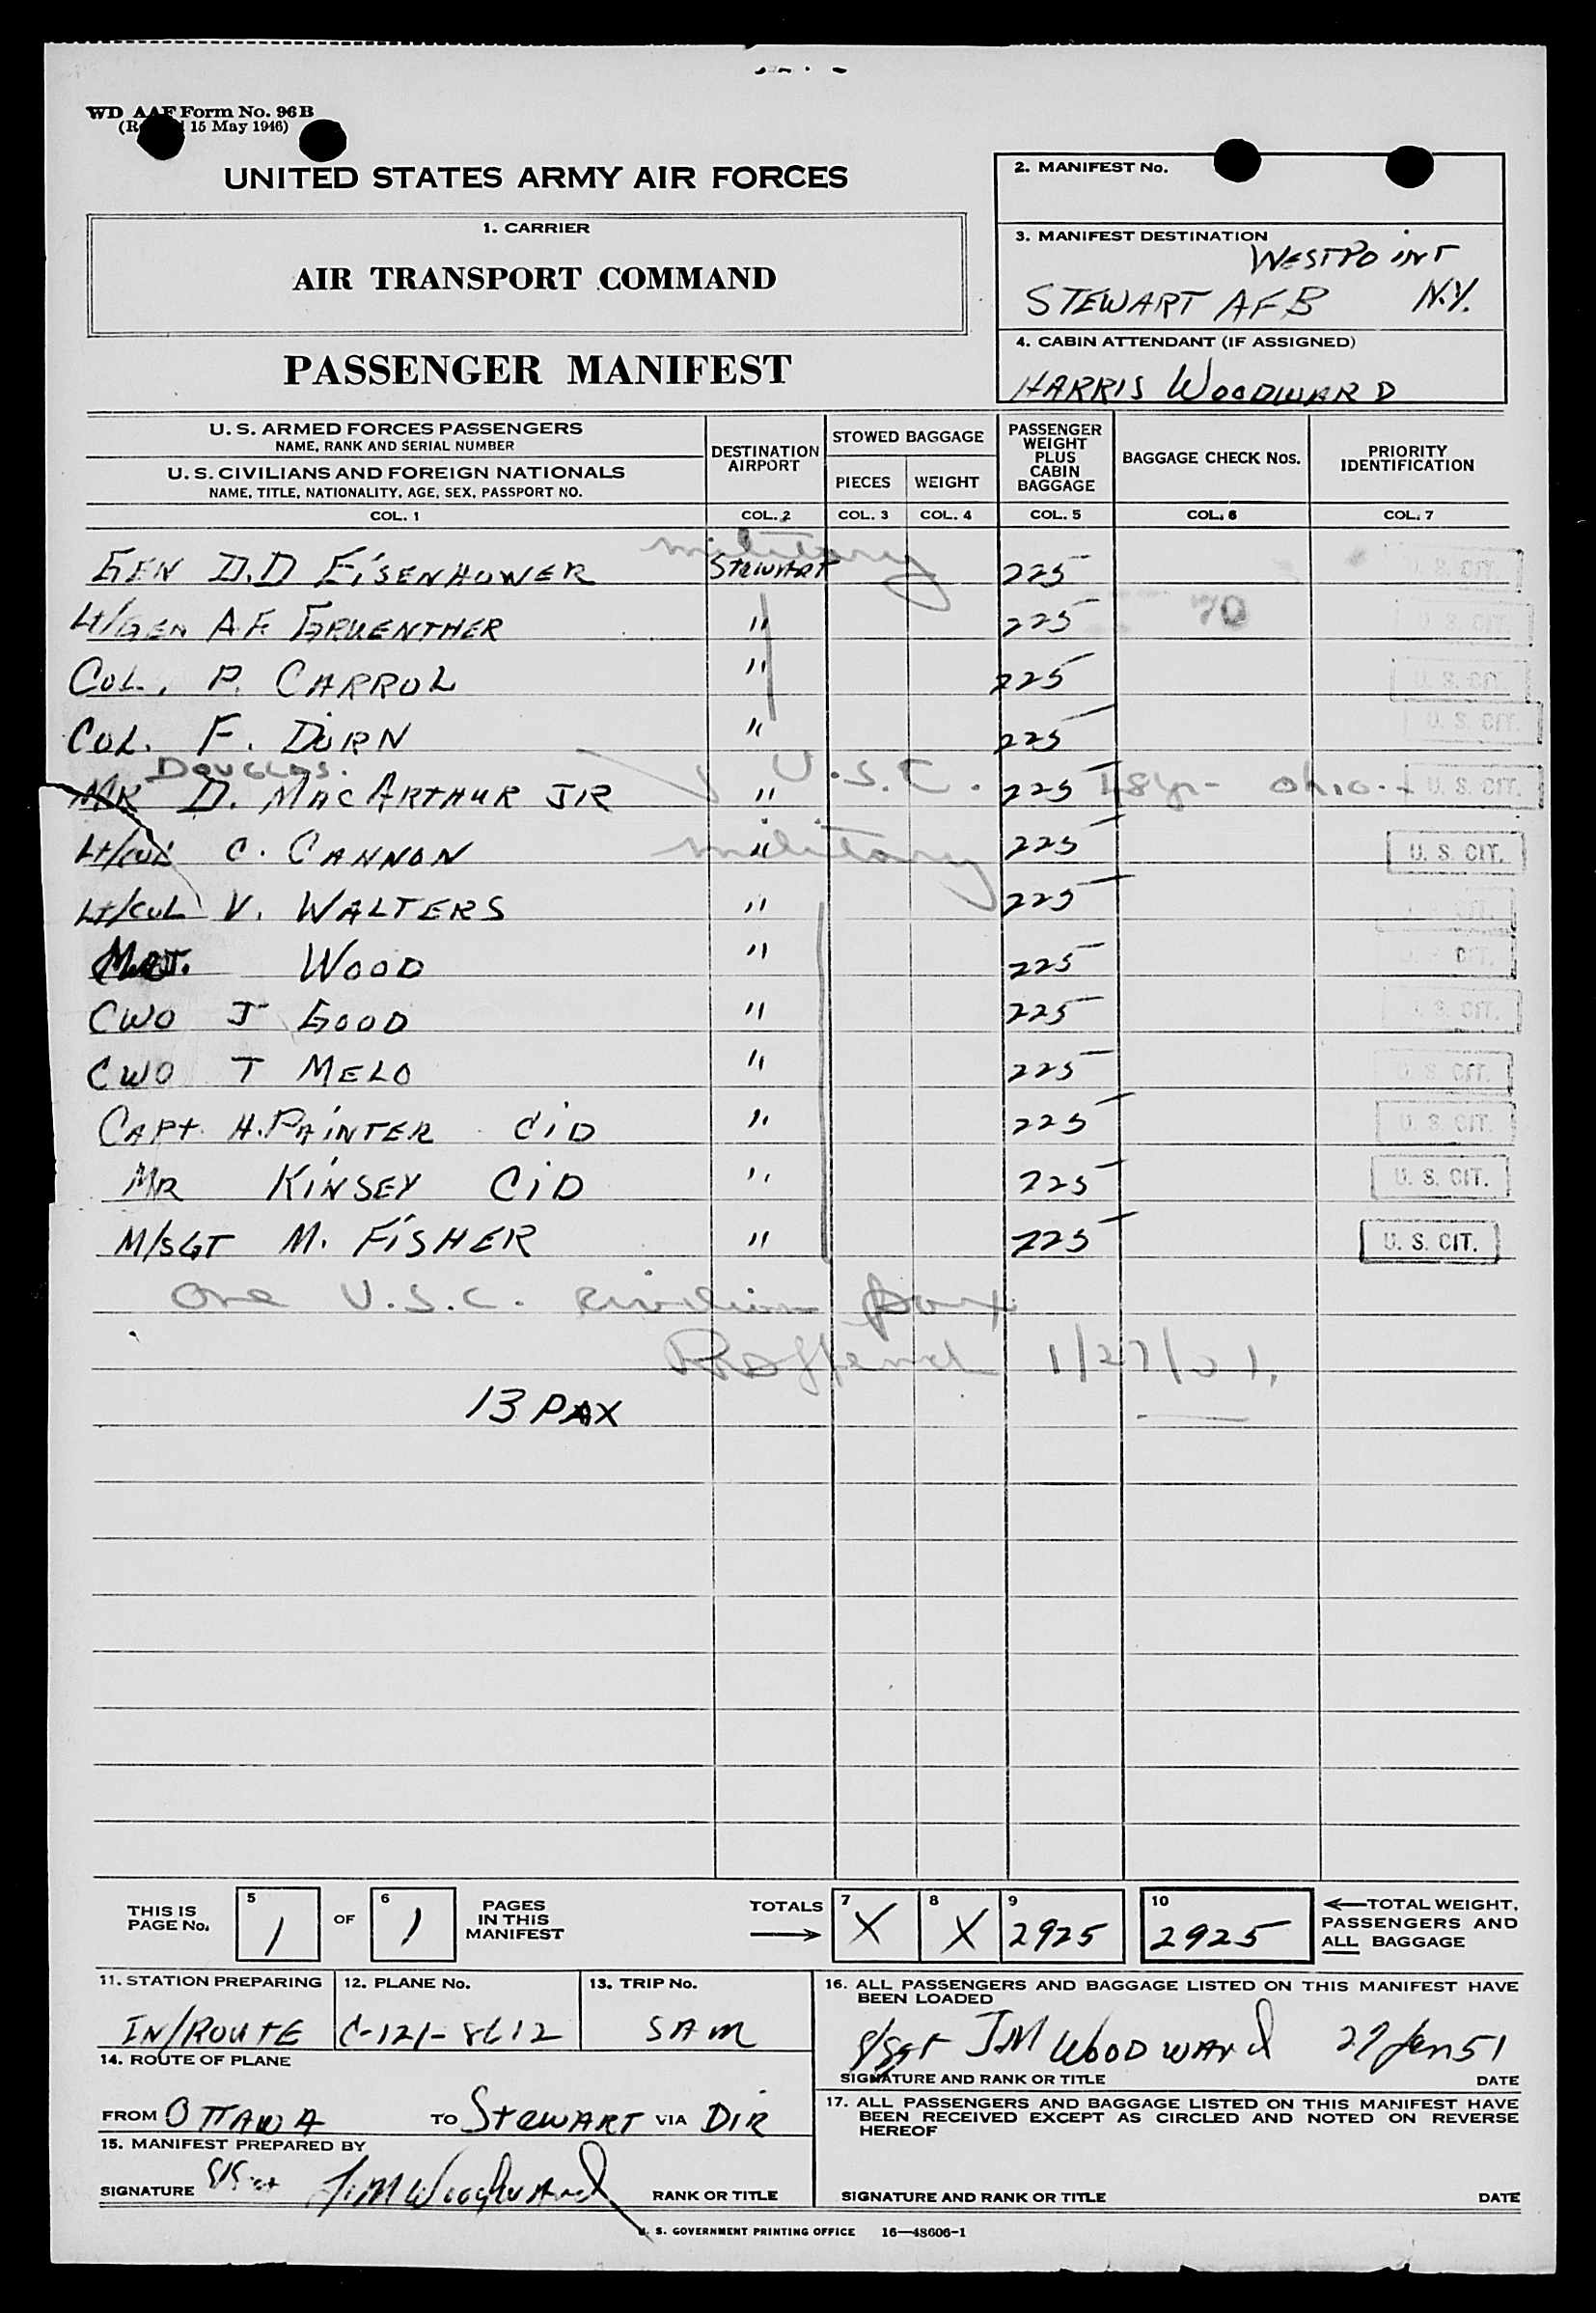 WD AAF Form No. 96B
15 May 1946)
UNITED STATES ARMY AIR FORCES
1. CARRIER
AIR TRANSPORT COMMAND
PASSENGER MANIFEST
2. MANIFEST No.
3. MANIFEST DESTINATION
WESTPOINT
STEWART AFB N.Y.
4. CABIN ATTENDANT (IF ASSIGNED)
HARRIS WOODWARD
U. S. ARMED FORCES PASSENGERS
NAME, RANK AND SERIAL NUMBER
U. S. CIVILIANS AND FOREIGN NATIONALS
NAME, TITLE, NATIONALITY, AGE, SEX, PASSPORT NO.
DESTINATION AIRPORT
STOWED BAGGAGE
PIECES WEIGHT
PASSENGER WEIGHT PLUS CABIN BAGGAGE
BAGGAGE CHECK Nos.
PRIORITY IDENTIFICATION
COL. 1 COL. 2 COL. 3 COL. 4 COL. 5 COL. 6 COL. 7
military
GEN D.D EISENHOWER STEWART 225 U. S. CIT.
Lt/GEN A.F. GRUENTHER " 225 70 U. S. CIT.
COL. P. CARROL " 225 U. S. CIT.
COL. F. DORN " 225 U. S. CIT.
DOUGLAS.
MR D. MACARTHUR JR " U.S.C. 225 48yr - Ohio. U. S. CIT.
Lt/COL C. CANNON " military 225 U. S. CIT.
Lt/COL V. WALTERS " 225 CIT.
MAJ. WOOD " 225 CIT.
CWO J GOOD " 225 U. S. CIT.
CWO T MELO " 225 U. S. CIT.
CAPT. H. PAINTER CID " 225 U. S. CIT.
MR KINSEY CID " 225 U. S. CIT.
M/SGT M. FISHER " 225 U. S. CIT.
One U.S.C. civilian pax
1/27/51.
13 PAX
THIS IS PAGE No. 5 1 OF 6 1 PAGES IN THIS MANIFEST
TOTALS 7 X 8 X 9 2925 10 2925 ←TOTAL WEIGHT, PASSENGERS AND ALL BAGGAGE
11. STATION PREPARING 12. PLANE No. 13. TRIP No.
IN/ROUTE C-121-8612 SAM
14. ROUTE OF PLANE
FROM OTTAWA TO STEWART VIA DIR
15. MANIFEST PREPARED BY
SIGNATURE S/Sgt J.M Woodward RANK OR TITLE
16. ALL PASSENGERS AND BAGGAGE LISTED ON THIS MANIFEST HAVE
BEEN LOADED
S/Sgt JM WOODWARD 27 Jan 51
SIGNATURE AND RANK OR TITLE DATE
17. ALL PASSENGERS AND BAGGAGE LISTED ON THIS MANIFEST HAVE
BEEN RECEIVED EXCEPT AS CIRCLED AND NOTED ON REVERSE
HEREOF
SIGNATURE AND RANK OR TITLE DATE
U. S. GOVERNMENT PRINTING OFFICE 16—48606-1